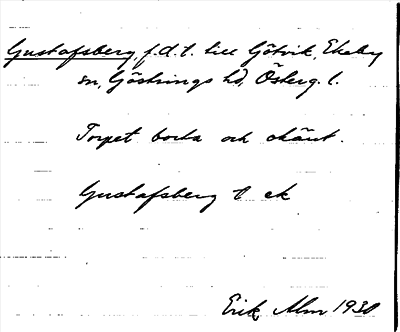 Gustafsberg, f.d.t. till Götvik, Ekeby
sn, Göstrings hd, Österg. l.
Torpet borta och okänt.
Gustafsberg t ek
Erik Alm 1930